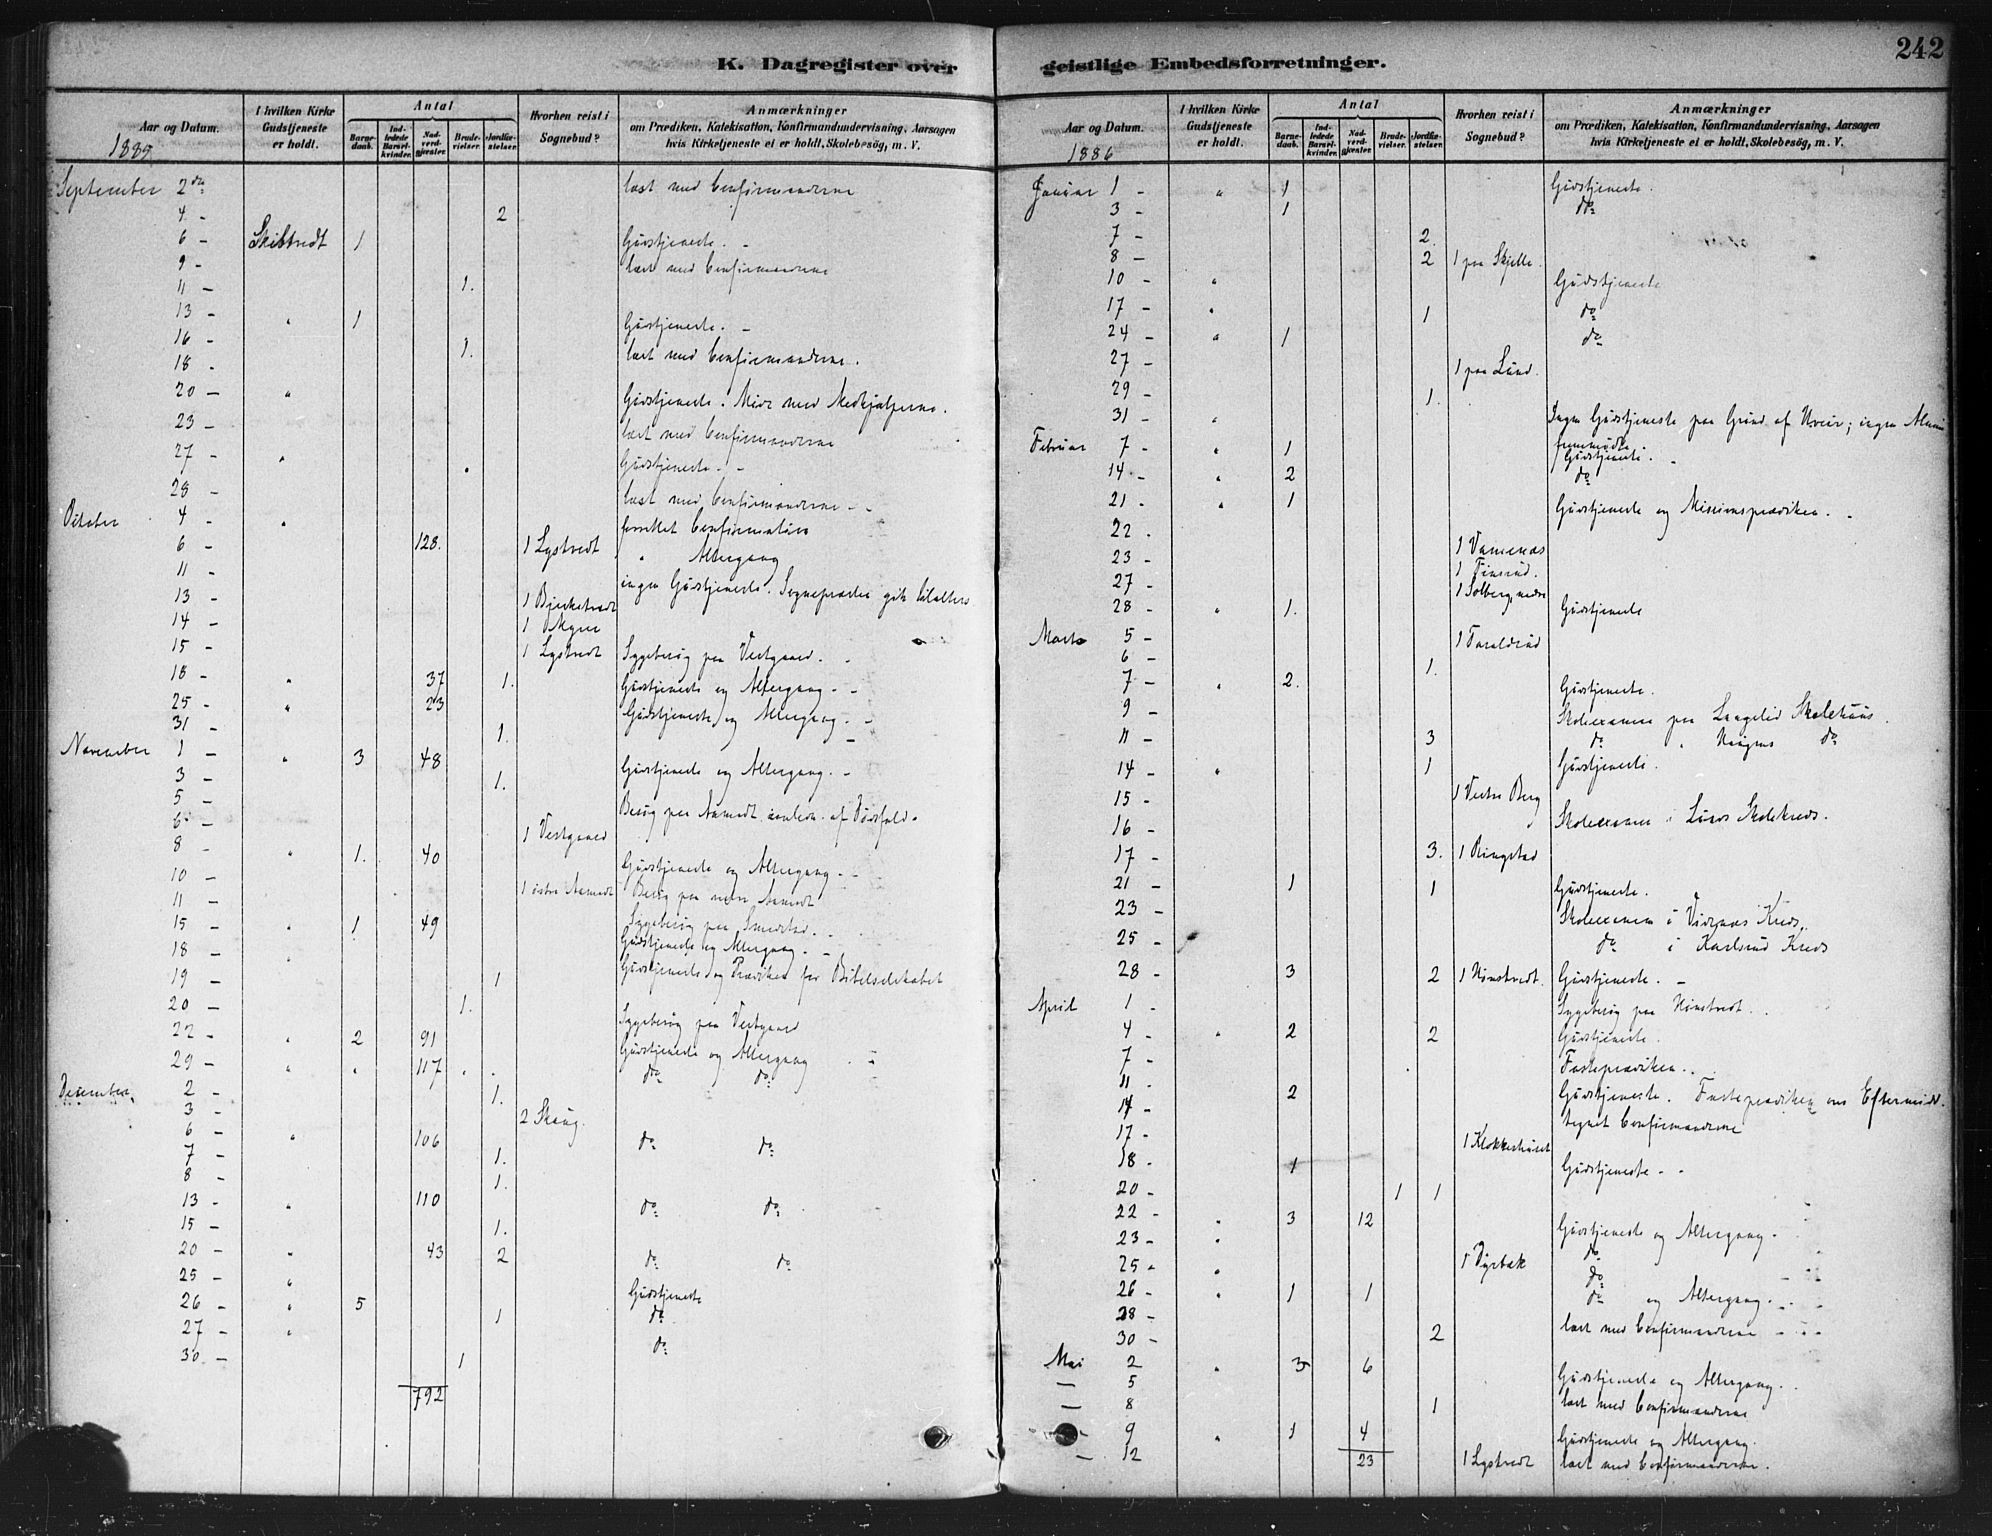 K. Dagregister over
Aar og Datum.
1885
I hvilken Kirke Gudstjeneste er holdt.
Antal
Barnedaab.
Indledede Barselkvinder.
Nadverdgjæster.
Brudevielser.
Jordfæstelser.
Hvorhen reist i Sognebud?
Anmærkninger
om Prædiken, Katekisation, Konfirmandundervisning, Aarsagen
hvis Kirketjeneste ei er holdt, Skolebesög, m. V.
September 2den læst med Confirmanderne
4 - 2
6 - Skibtvedt 1 Gudstjeneste. -
9 - læst med Confirmanderne
11 - 1.
13 - " 1 Gudstjeneste. -
16 - læst med Confirmanderne.
18 - 1.
20 - " Gudstjeneste. Møde med Medhjælperne.
23 - læst med Confirmanderne
27 - " Gudstjeneste. -
28 - læst med Confirmanderne - -
October 4 - " forrettet Confirmation
6 - 128. 1 Lystvedt " Altergang
11 - ingen Gudstjeneste. Sognepræsten gik til alters
13 - 1 Bjerketvedt
14 - 1 Myrer
15 - 1 Lystvedt Sygebesøg paa Vestgaard. -
18 - " 37 1. Gudstjeneste og Altergang. -
25 - " 23 Gudstjeneste og Altergang. -
31 - 1.
November 1 - " 3 48 Gudstjeneste og Altergang. -
3 - 1.
5 - Besøg paa Aamodt anledn. af Dødsfald.
6 - 1 Vestgaard
8 - " 1. 40 Gudstjeneste og Altergang. -
10 - 1 østre Aamodt Besøg paa nedre Aamodt
11 - Sygebesøg paa Smedstad. -
15 - " 1 49 Gudstjeneste og Altergang. -
18 - " Gudstjeneste og Prædiken for Bibelselskabet
19 - 1
20 - 1. Sygebesøg paa Vestgaard
22 - " 2 91 Gudstjeneste og Altergang
29 - " " 117 do do
December 2 - 1.
3 - 2 Skaug.
6 - " 106 do do
7 - 1.
8 - 1.
13 - " 110 do do
15 - 1.
20 - " 43 2 do do
25 - " Gudstjeneste
26 - " 5 1 do
27 - " do
30 - 1
792
geistlige Embedsforretninger.
242
Aar og Datum.
1886
I hvilken Kirke Gudstjeneste er holdt.
Antal
Barnedaab.
Indledede Barselkvinder.
Nadverdgjæster.
Brudevielser.
Jordfæstelser.
Hvorhen reist i Sognebud?
Anmærkninger
om Prædiken, Katekisation, Konfirmandundervisning, Aarsagen
hvis Kirketjeneste ei er holdt, Skolebesög, m. V.
Januar 1 - " 1 Gudstjeneste.
3 - 1 do
7 - 2.
8 - 2 1 paa Skjelle.
10 - " Gudstjeneste
17 - " 1 do
24 - " 1 do
27 - 1 paa Lund.
29 - 1.
31 - " Ingen Gudstjeneste paa Grund af Uveir; ingen Almue
fremmødte.
Februar 7 - " 1 Gudstjeneste. -
14 - " 2 do
21 - " 1 Gudstjeneste og Missionsprædiken. -
22 -
23 - 1 Vamenæs
27 - 1 Finsrud.
1 Solberg nedre
28 - " 1. Gudstjeneste
Marts 5 - 1 Taraldrud
6 - 1.
7 - " 2. Gudstjeneste.
9 - Skoleexamen paa Langelid Skolehuus.
11 - 3 do " Haugens do
14 - " 1 Gudstjeneste.
15 - 1 Vestre Berg
16 - Skoleexamen i Lunds Skolekreds.
17 - 3. 1 Ringstad
21 - 1 1 Gudstjeneste.
23 - Skoleexamen i Vidnæs Kreds.
25 - do i Karlsrud Kreds
28 - 3 2 1 Hinstvedt. Gudstjeneste. -
April 1 - Sygebesøg paa Hinstvedt.
4 - " 2 2 Gudstjeneste.
7 - Fasteprædiken.
11 - 2 Gudstjeneste. Fasteprædiken om Eftermidd.
14 - tegnet Confirmanderne
17 - 1 Klokkerhuset
18 - 1 Gudstjeneste - -
20 - 1 1
22 - " 3 12 Gudstjeneste og Altergang.
23 - " do
25 - " 1 Dyrbæk do
26 - " 1 1 do og Altergang.
28 - læst med Confirmanderne -
30 - 2
Mai 2 " 3 6 Gudstjeneste og Altergang.
- 5 læst med Confirmanderne
- 8 1
- 9 " 1 4 Gudstjeneste og Altergang.
- 12 23 1 Lystvedt læst med Confirmanderne.